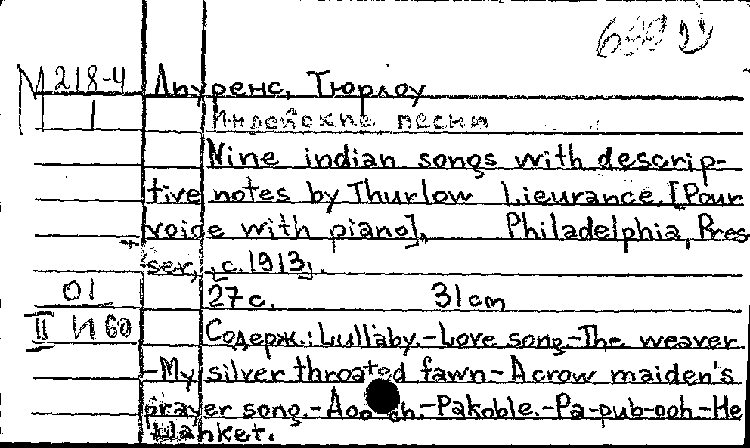 М 218-4
1
Льуренс, Тюрлоу
Индейские песни
Nine indian songs with descrip-
tive notes by Thurlow Lieurance. [Pour
voice with piano]. Philadelphia, Pres
ser, [c.1913].
01
27 с. 31cm
II И 60
Содерж.: Lullaby.-Love song-The weaver
-My silver throated fawn-A crow maiden's
prayer song.-.-Pakoble.-Pa-pub-ooh-He
Wanket.